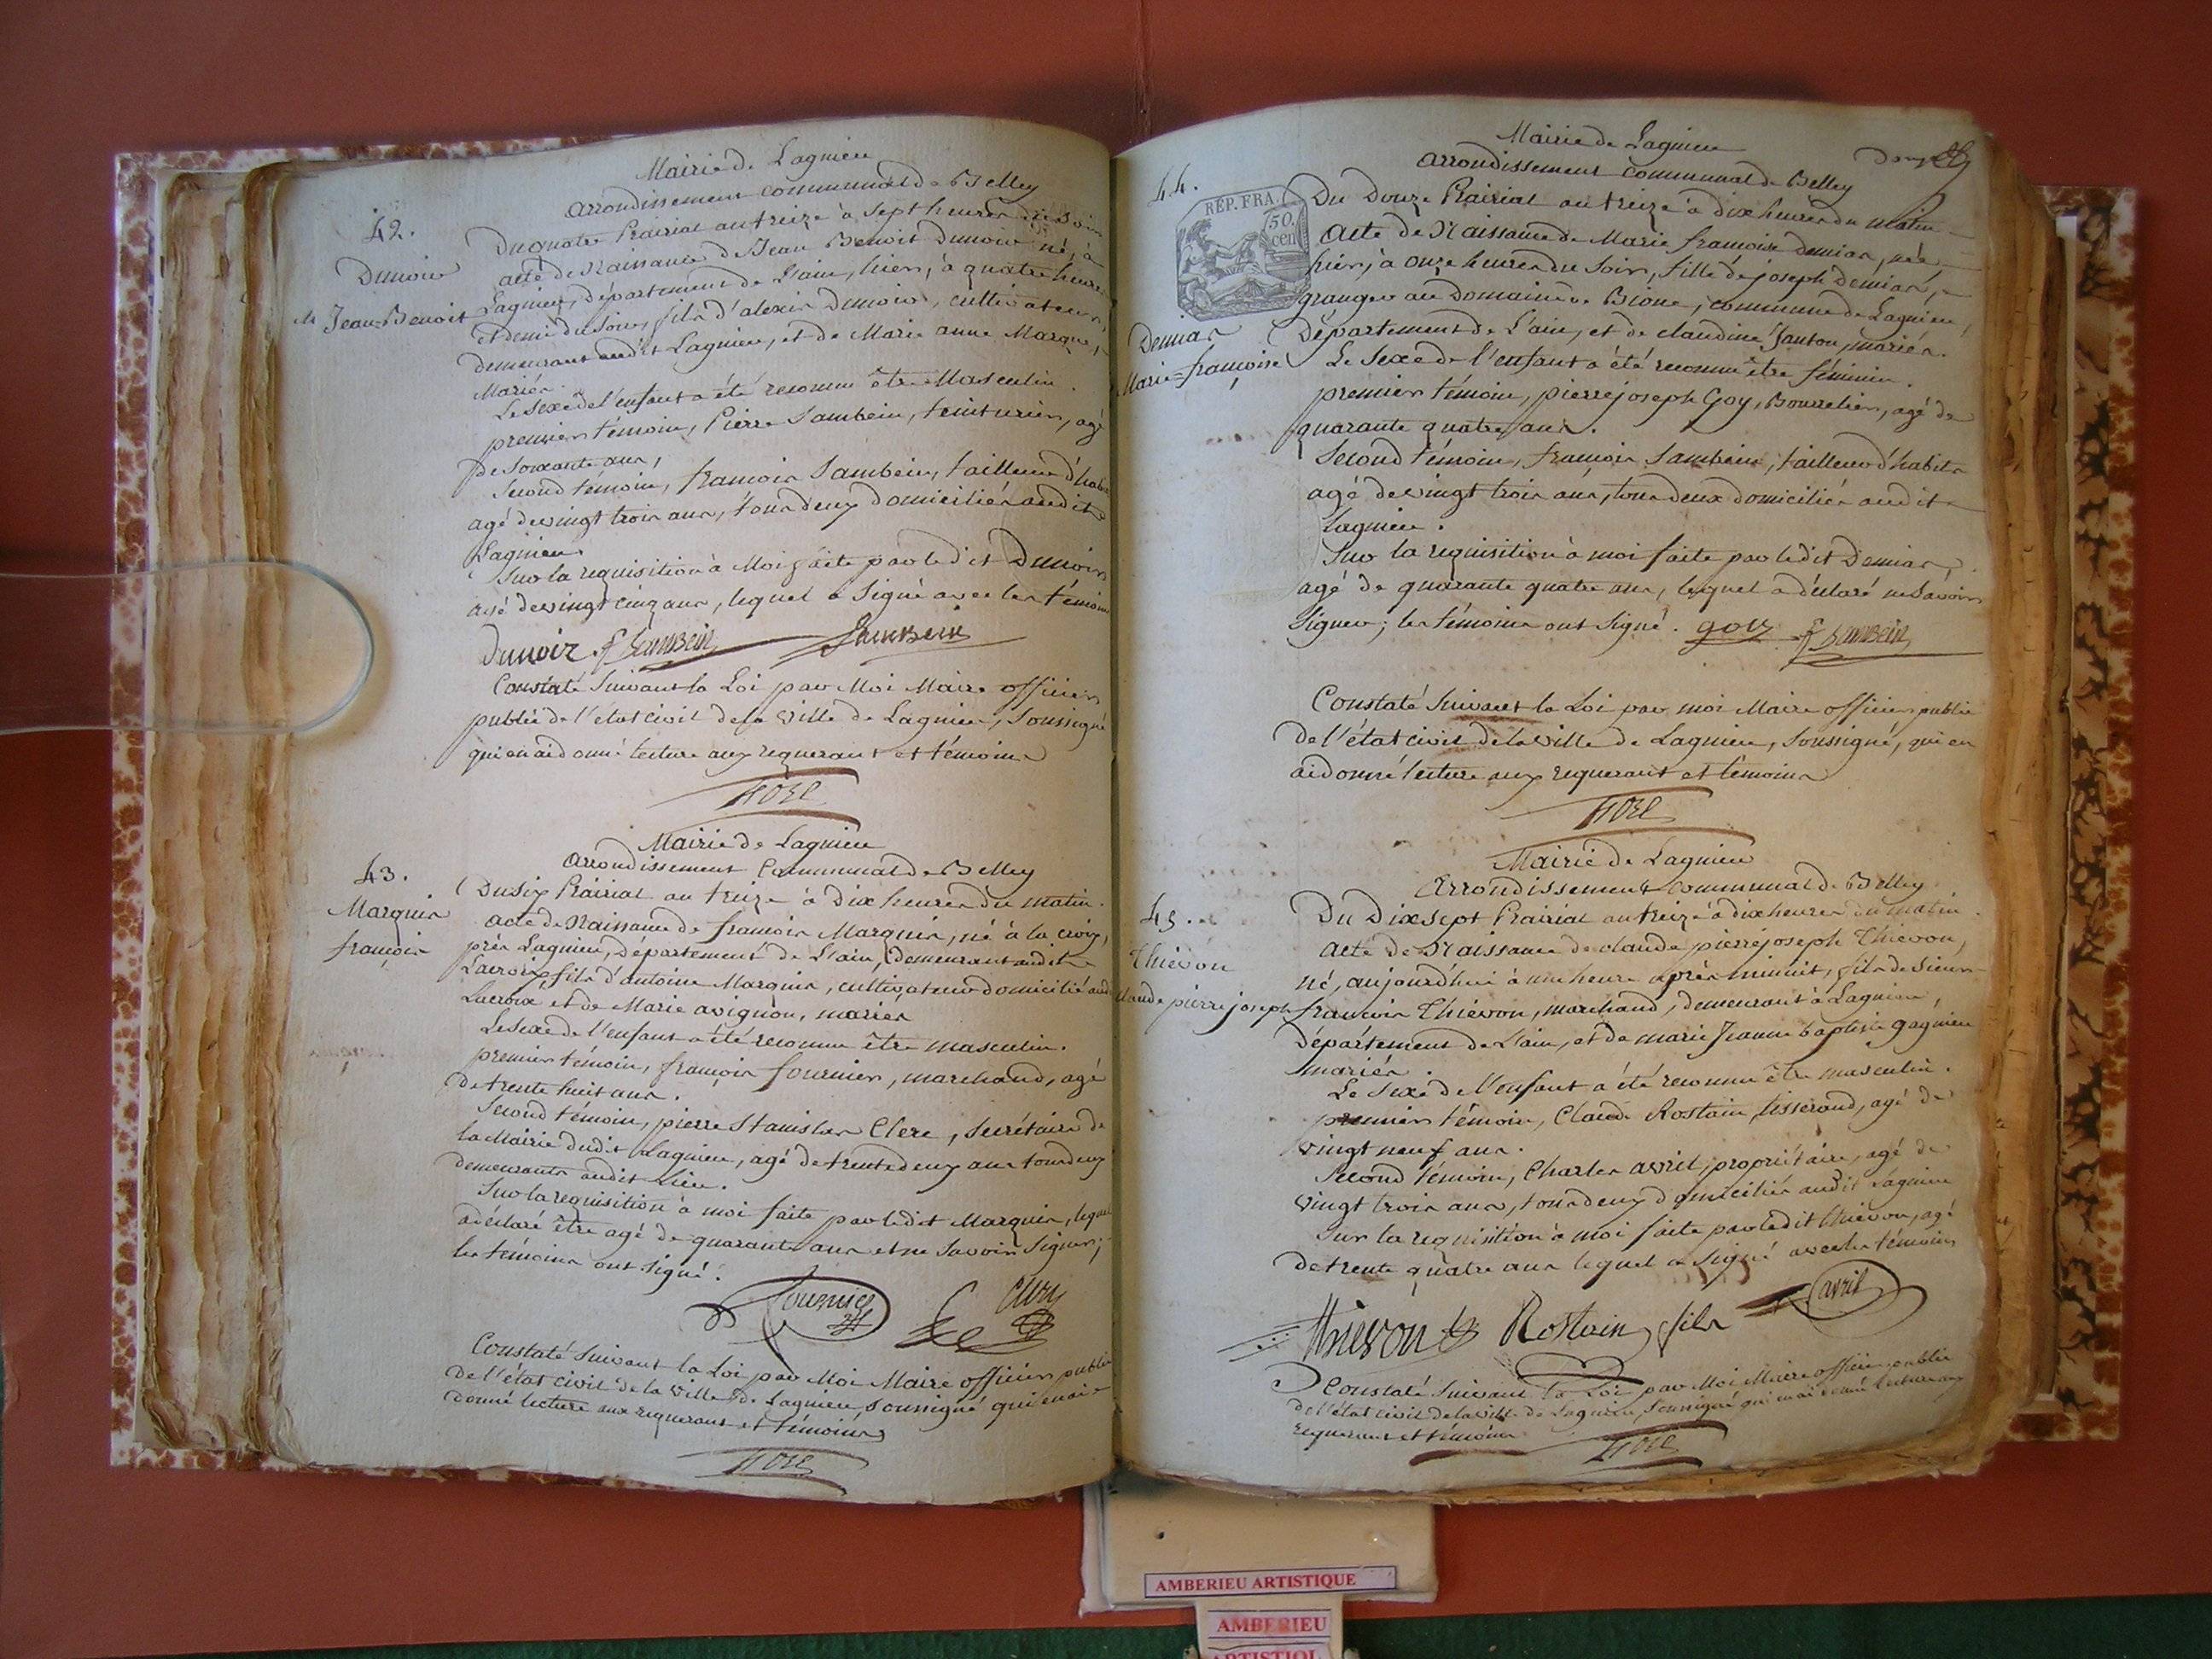 Mairie de Lagnieu
arrondissement communal de Belley
42.
Dunoir
Jean-Benoit
Du quatre Prairial an treize à sept heures du soir
acte de Naissance de Jean Benoit Dunoir né, à
Lagnieu, Département de L'ain, hier, à quatre heures
et demi du soir, fils d'alexis Dunoir, cultivateur,
demeurant audit Lagnieu, et de Marie anne Marque,
Mariés.
Le Sexe de l'enfant a été reconnu être Masculin.
premier témoin, Pierre Sambein, teinturier, agé
de soixante ans,
Second témoin, francois Sambein, tailleur d'habits
agé de vingt trois ans, tous deux domiciliés audit
Lagnieu.
Sur la requisition à Moi faite par ledit Dunoir
agé de vingt cinq ans, lequel a Signé avec les témoins
Dunoir f Sambein Sambein
Constaté Suivant la Loi par Moi Maire officier
public de l'état civil de la Ville de Lagnieu, Soussigné
qui en ai donné lecture aux requerant et témoins
Mairie de Lagnieu
arrondissement Communal de Belley
43.
Marquis
françois
Du Six Prairial an treize à Dix heures du matin.
acte de Naissance de francois Marquis, né à la croix,
près Lagnieu, Département de L'ain, demeurant audit
Lacroix, fils d'antoine Marquis, cultivateur domicilié audit
Lacroix et de Marie avignon, mariés
Le Sexe de l'enfant a été reconnu être masculin.
premier témoin, françois fournier, marchand, agé
de trente huit ans.
Second témoin, pierre Stanislas Clerc, Secrétaire de
la Mairie dudit Lagnieu, agé de trente deux ans tous deux
demeurants audit Lieu.
Sur la requisition à moi faite par ledit Marquis, lequel
a déclaré être agé de quarante ans et ne Savoir Signer;
les témoins ont signé.
fournier
Constaté Suivant la Loi par Moi Maire officier public
de l'état civil de la Ville de Lagnieu, soussigné qui en ai
donné lecture aux requerant et témoins
Mairie de Lagnieu
arrondissement communal de Belley
44.
REP. FRA.
50.
cen
Demias
Marie=françoise
Du Douze Prairial an treize à dix heures du matin
acte de Naissance de Marie françoise demias, née
hier, à onze heures du Soir, fille de joseph Demias,
granger au Domaine de Bione, commune de Lagnieu,
Département de L'ain, et de claudine Janton, mariés.
Le Sexe de l'enfant a été reconnu être féminin.
premier témoin, pierre joseph Goy, Bourrelier, agé de
quarante quatre ans.
Second témoin, françois Sambein, tailleur d'habits
agé de vingt trois ans, tous deux domiciliés audit
Lagnieu.
Sur la requisition à moi faite par ledit Demias,
agé de quarante quatre ans, lequel a déclaré ne Savoir
Signer; les témoins ont Signé. goy f Sambein
Constaté Suivant la Loi par moi Maire officier public
de l'état civil de la ville de Lagnieu, Soussigné, qui en
ai donné lecture aux requerant et témoins
Mairie de Lagnieu
Arrondissement communal de Belley
45.
Thievon
claude pierre joseph
Du Dix Sept Prairial an treize à dix heures du matin.
acte de Naissance de claude pierre joseph Thievon,
né, aujourd'hui à une heure après minuit, fils de Sieur
francois Thievon, marchand, demeurant à Lagnieu,
Département de L'ain, et de marie Jeanne baptiste gagnieu
mariés.
Le Sexe de l'enfant a été reconnu être masculin.
premier témoin, Claude Rostain, tisserand, agé de
vingt neuf ans.
Second témoin, Charles avril, propriétaire, agé de
vingt trois ans, tous deux domiciliés audit Lagnieu
Sur la requisition à moi faite par ledit Thievon, agé
de trente quatre ans lequel a Signé avec les témoins
thievon Rostain fils avril
Constaté Suivant la Loi par Moi Maire officier public
de l'état civil de la ville de Lagnieu, Soussigné qui en ai donné lecture aux
requerant et témoins
AMBERIEU ARTISTIQUE
AMBERIEU